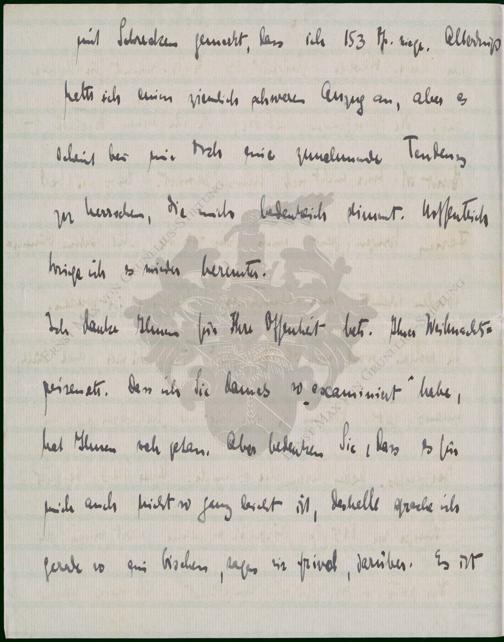 mit Schrecken gemerkt, dass ich 153 Pf. wiege. Allerdings
hatte ich einen ziemlich schweren Anzug an, aber es
scheint bei mir doch eine zunehmende Tendenz
zu herrschen, die mich bedenklich stimmt. Hoffentlich
bringe ich es wieder herunter.
Ich danke Ihnen für Ihre Offenheit betr. Ihres Weihnachts=
Dass ich Sie damals so „examiniert" habe,
hat Ihnen weh getan. Aber bedenken Sie, dass es für
mich auch nicht so ganz leicht ist, deshalb spreche ich
gerade so ein bischen, sagen wir frivol, darüber. Es ist